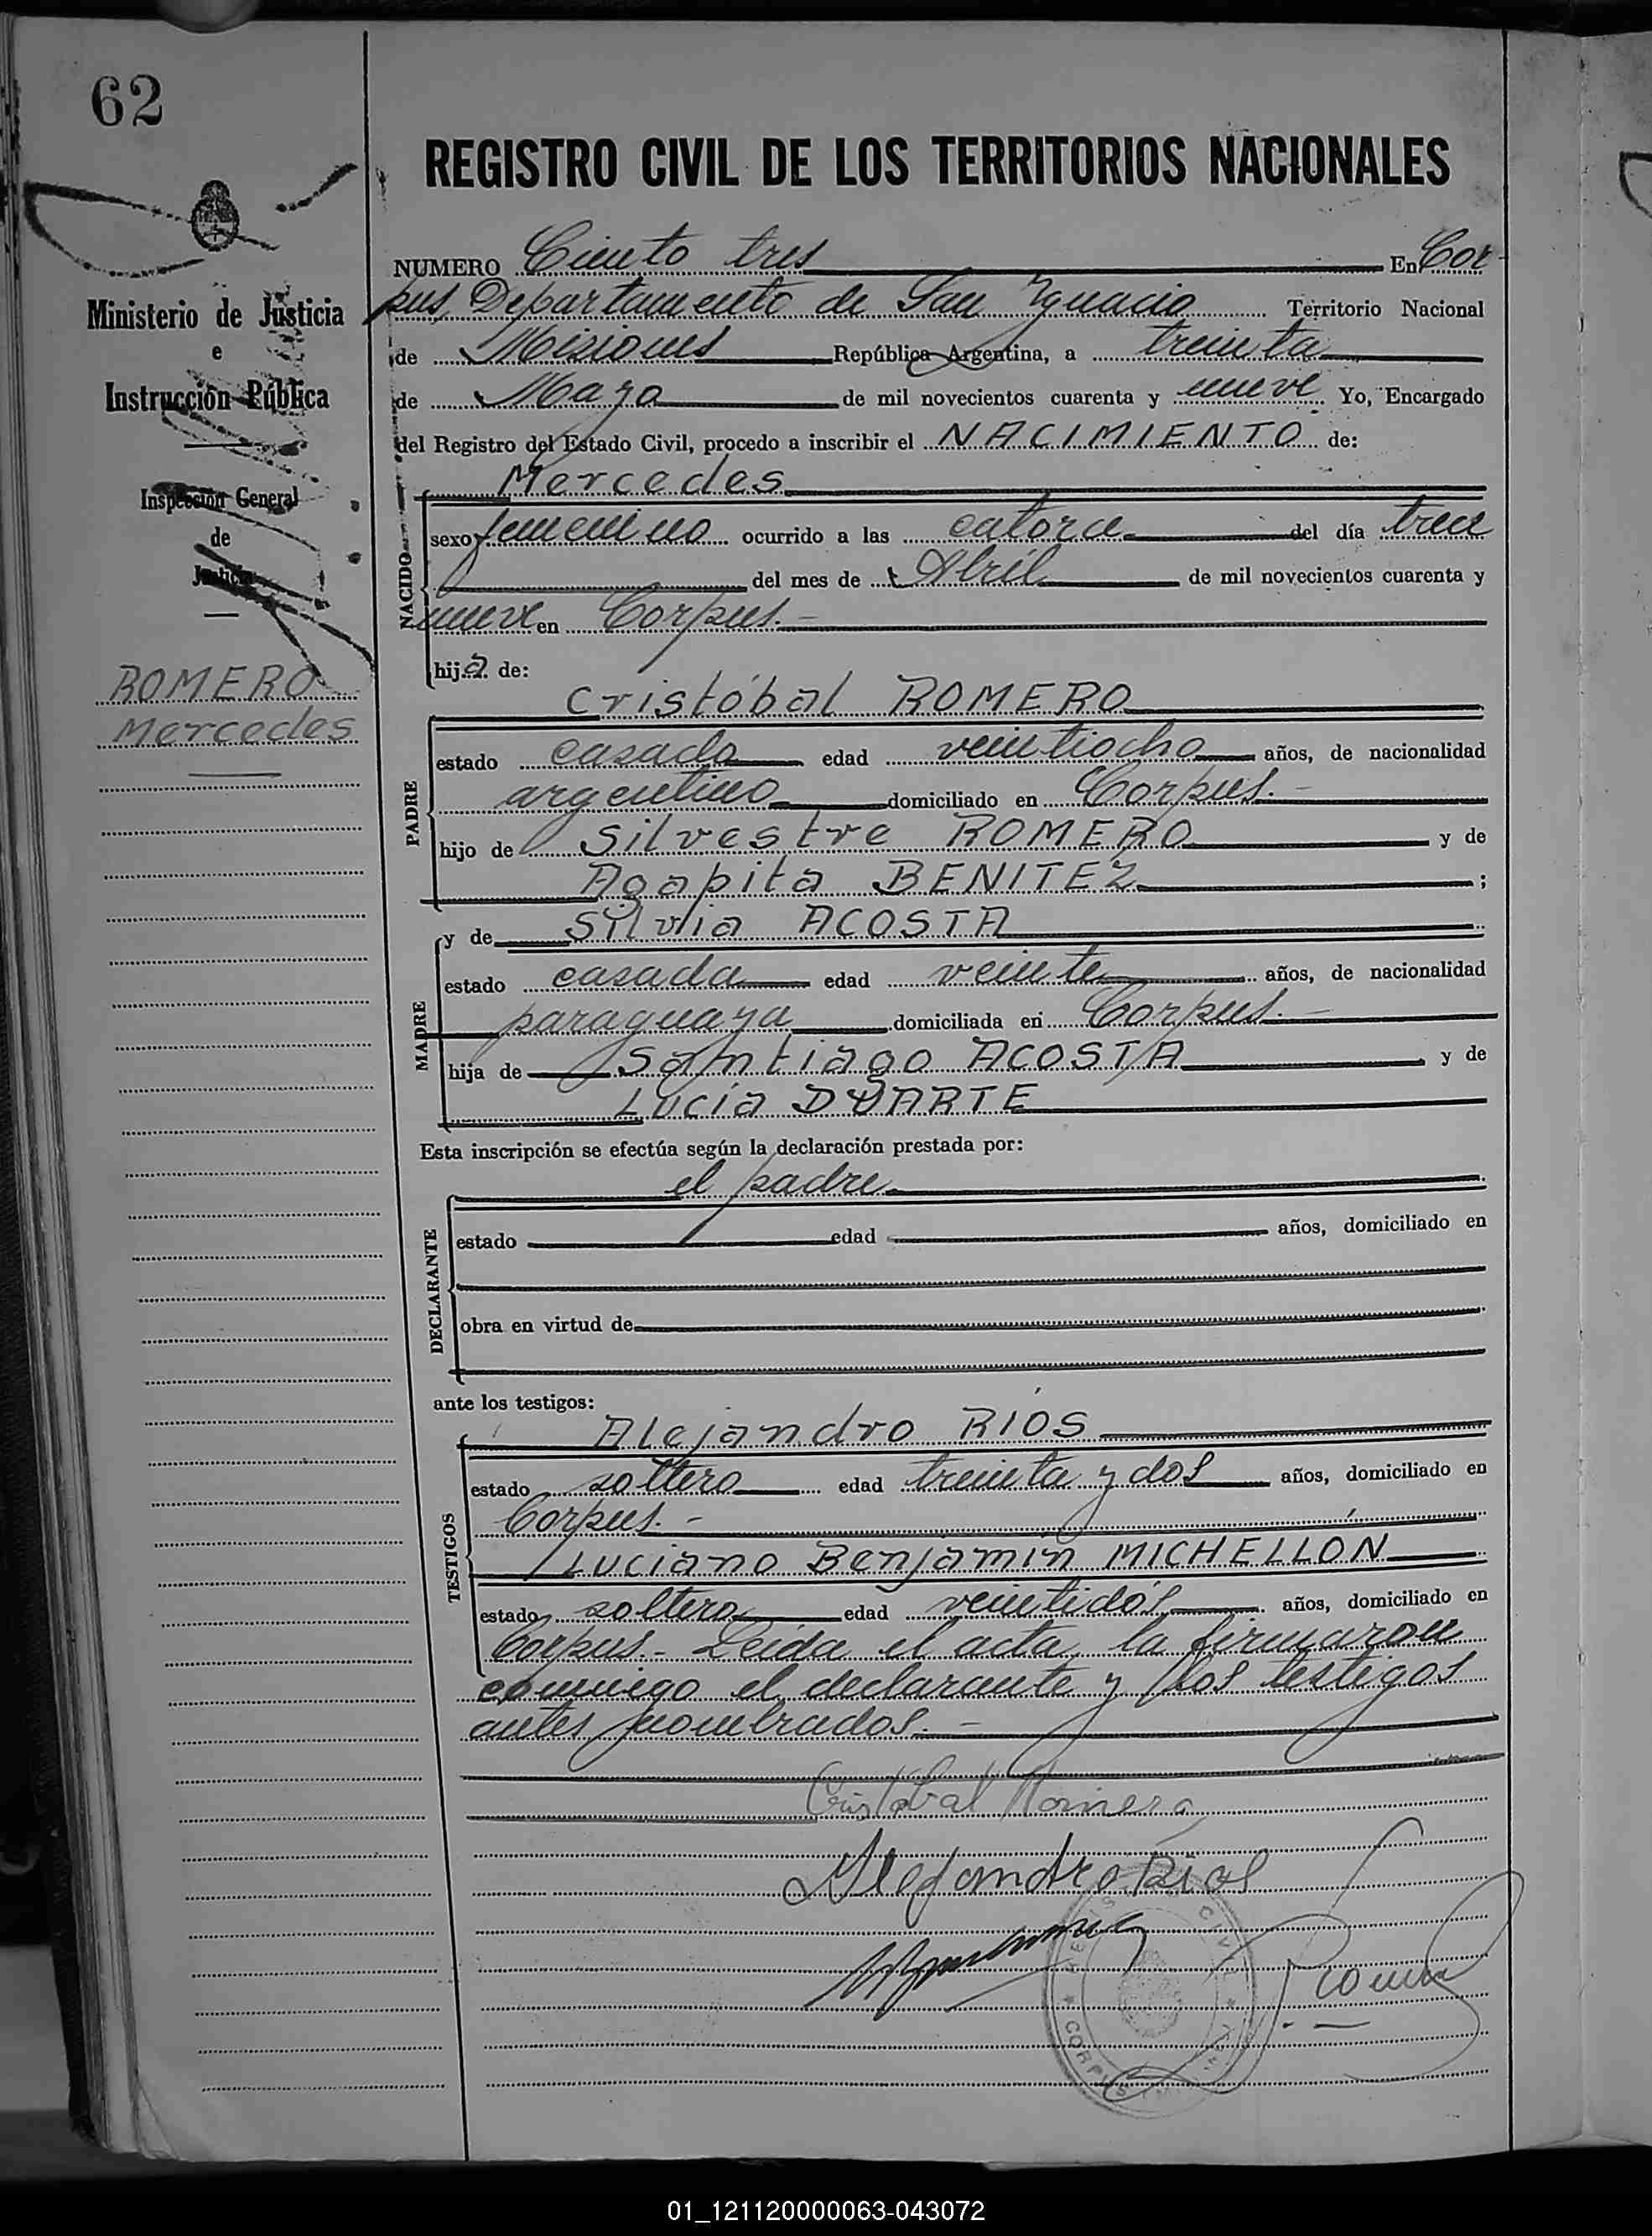 62
REGISTRO CIVIL DE LOS TERRITORIOS NACIONALES
Ministerio de Justicia
e
Instrucción Pública
Inspección General
de
Justicia
ROMERO
Mercedes
NUMERO Ciento tres En Cor-
pus Departamento de San Ygnacio Territorio Nacional
de Misiones República Argentina, a treinta
de Mayo de mil novecientos cuarenta y nueve Yo, Encargado
del Registro del Estado Civil, procedo a inscribir el NACIMIENTO de:
Mercedes
NACIDO
sexo femenino ocurrido a las catorce del día trece
del mes de Abril de mil novecientos cuarenta y
nueve en Corpus.-
hija de:
Cristóbal ROMERO
PADRE
estado casado edad veintiocho años, de nacionalidad
argentino domiciliado en Corpus.-
hijo de Silvestre ROMERO y de
Agapita BENITEZ ;
y de Silvia ACOSTA
MADRE
estado casada edad veinte años, de nacionalidad
paraguaya domiciliada en Corpus.-
hija de Santiago ACOSTA y de
Lucía DUARTE
Esta inscripción se efectúa según la declaración prestada por:
el padre
DECLARANTE
estado edad años, domiciliado en
obra en virtud de
ante los testigos:
Alejandro RÍOS
TESTIGOS
estado soltero edad treinta y dos años, domiciliado en
Corpus.-
Luciano Benjamín MICHELLÓN
estado soltero edad veintidós años, domiciliado en
Corpus.- Leída el acta, la firmaron
conmigo el declarante y los testigos
antes nombrados.-
Cristobal Romero
Alejandro Rios
CORPUS
01_121120000063-043072